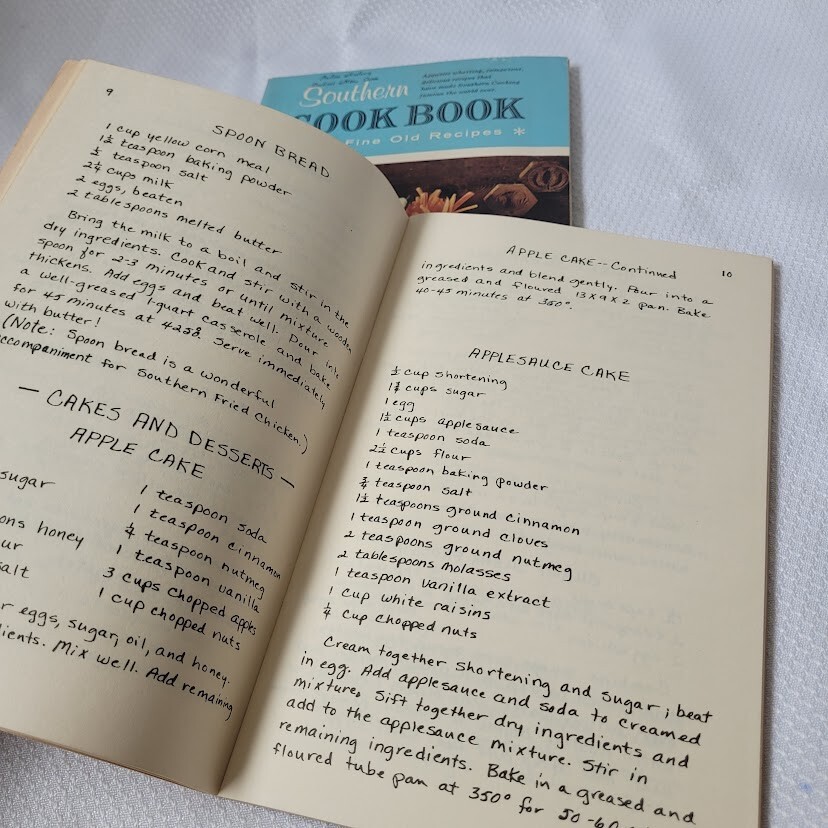 Southern
COOK BOOK
Fine Old Recipes *
9
SPOON BREAD
1 cup yellow corn meal
1½ teaspoon baking powder
teaspoon salt
2¼ cups milk
2 eggs, beaten
2 tablespoons melted butter
Bring the milk to a boil and stir in the
dry ingredients. Cook and stir with a wooden
spoon for 2-3 minutes or until mixture
thickens. Add eggs and beat well. Pour into
a well-greased 1 quart casserole and bake
for 45 minutes at Serve immediately
with butter!
(Note: Spoon bread is a wonderful
ccompaniment for Southern Fried Chicken.)
— CAKES AND DESSERTS —
APPLE CAKE
sugar
ons honey
ur
salt
1 teaspoon soda
1 teaspoon cinnamon
¼ teaspoon nutmeg
1 teaspoon vanilla
3 cups chopped apples
1 cup chopped nuts
r eggs, sugar, oil, and honey.
ients. Mix well. Add remaining
APPLE CAKE--Continued
10
ingredients and blend gently. Pour into a
greased and floured 13x9x2 pan. Bake
40-45 minutes at 350°.
APPLESAUCE CAKE
½ cup shortening
cups sugar
1 egg
1½ cups applesauce
1 teaspoon soda
2½ cups flour
1 teaspoon baking powder
¾ teaspoon salt
1½ teaspoons ground cinnamon
1 teaspoon ground cloves
2 teaspoons ground nutmeg
2 tablespoons molasses
1 teaspoon vanilla extract
1 cup white raisins
cup chopped nuts
Cream together shortening and sugar; beat
in egg. Add applesauce and soda to creamed
mixture. Sift together dry ingredients and
add to the applesauce mixture. Stir in
remaining ingredients. Bake in a greased and
floured tube pan at 350° for 50-60